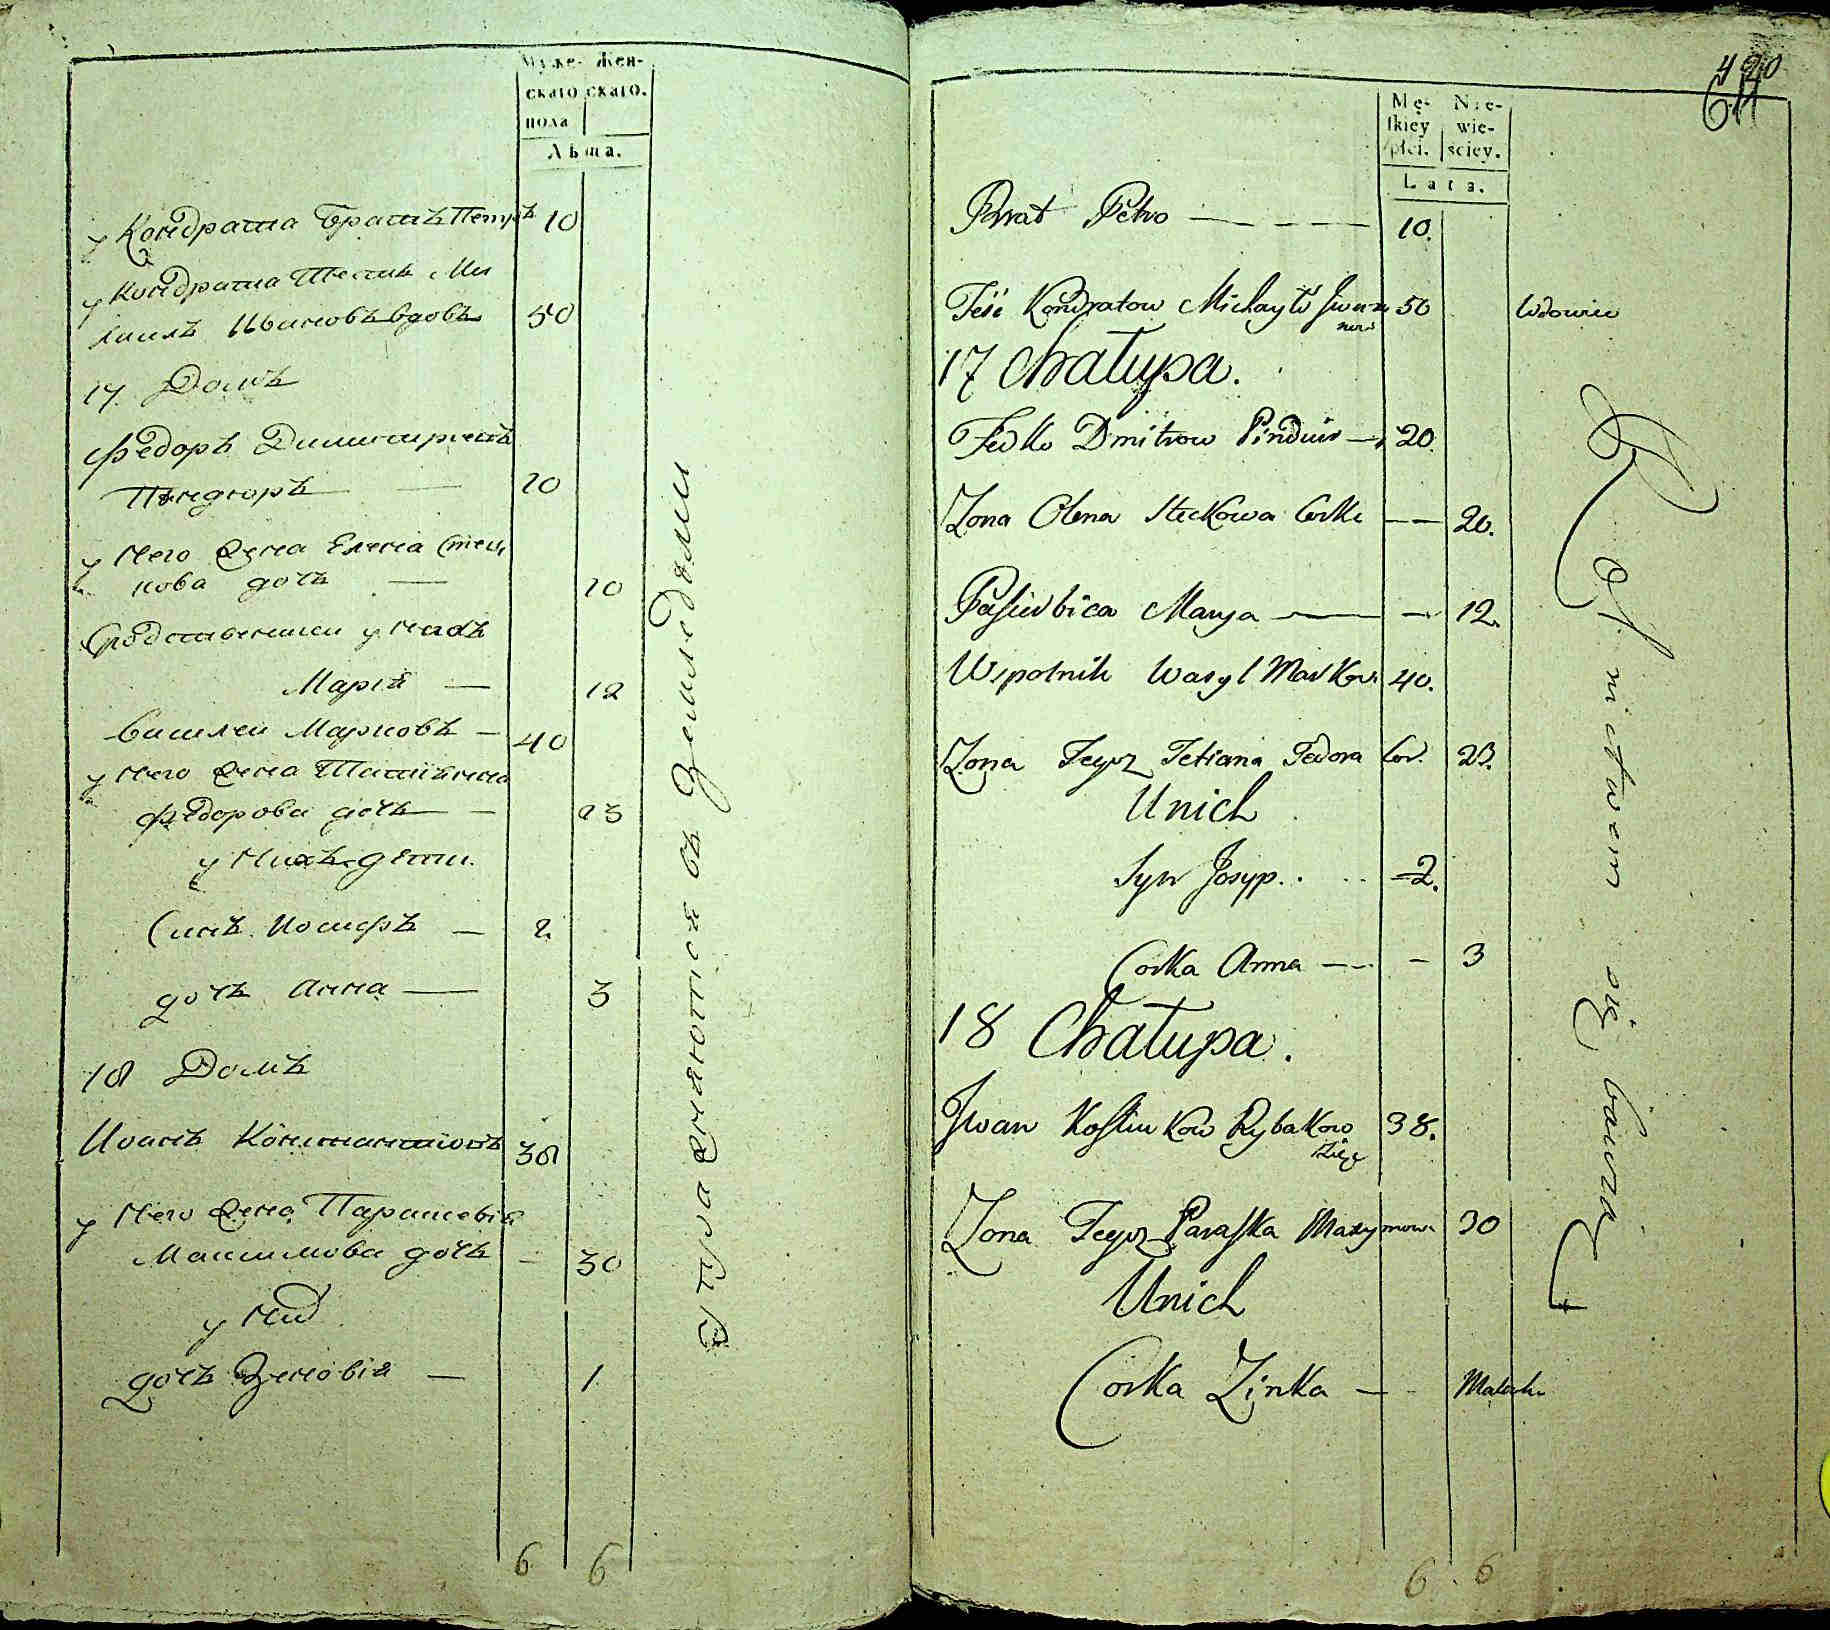 Муже- Жен-
скаго скаго.
пола
Лѣта.
у Кондрата братъ Петръ 10
у Кондрата тесть Ми
хаилъ Ивановъ вдовъ 50
17. Домъ
Федоръ Димитриевъ
Пѣндюръ — 20
у него жена Елена Стец
кова дочь — 20
Сродственница у нихъ
Марія — 12
Василей Марковъ — 40
у него жена Татіанна
Федорова дочь — 23
у нихъ дети.
Синъ Иосифъ — 2.
дочь Анна — 3
18 Домъ
Иоанъ Константиновъ 38
у него жена Парасиевія
Максимова дочь — 30
у них
дочь Зеновія — 1
6 6
Упражняются въ Земледелии
490
Mę- Nie-
skiey wie-
płci. sciey.
Lata.
Brat Petro — 10.
Teść Kondratow Michayło Iwa
now 50 Wdowiec
17 Chałupa.
Fedko Dmitrow Pindiur — 20.
Zona Olena Steckowa Corka — 20.
Pasierbica Marya — 12.
Wspolnik Wasyl Markow 40.
Zona Tegoz Tetiana Fedora Cor. 23.
U nich
Syn Josyp.. 2.
Corka Anna — 3
18 Chałupa.
Iwan Kostiukow Rybakow
38.
Zona Tegoz Paraska Maxymowa 30
U nich
Corka Zinka —
6. 6
Rolnictwem się bawią